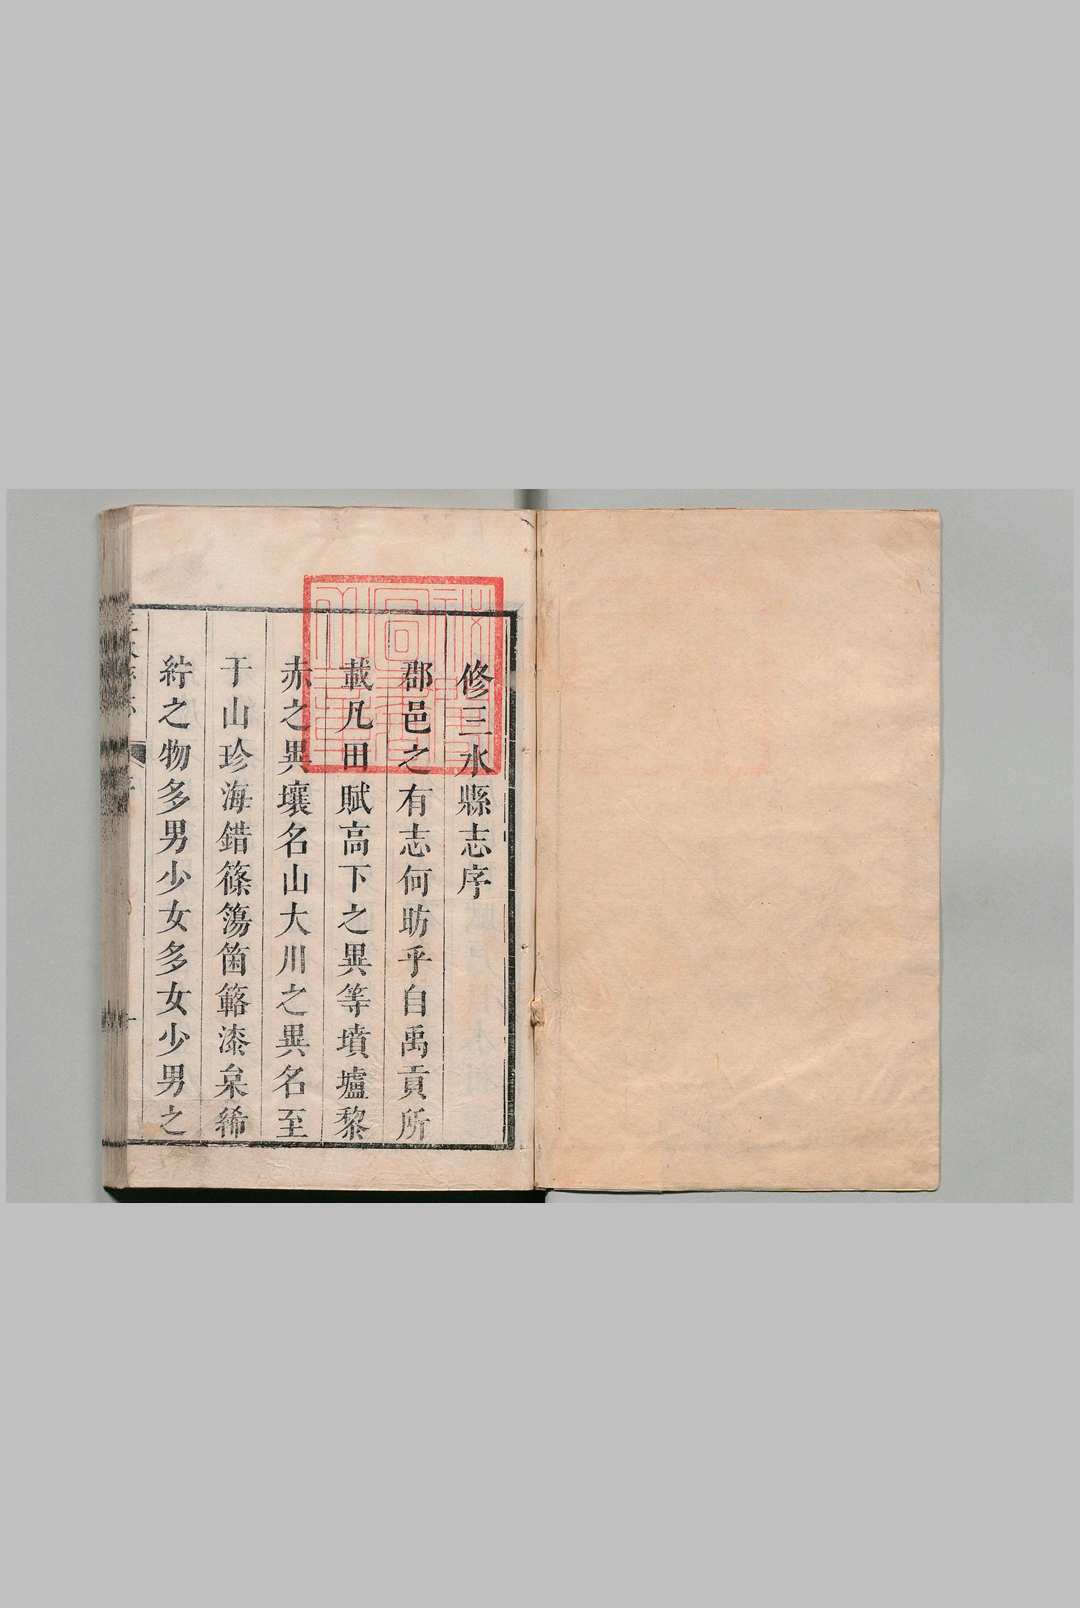 修三水縣志序
郡邑之有志何昉乎自禹貢所
載凡田賦高下之異等墳壚黎
赤之異壤名山大川之異名至
于山珍海錯篠簜箘簵漆枲絺
紵之物多男少女多女少男之